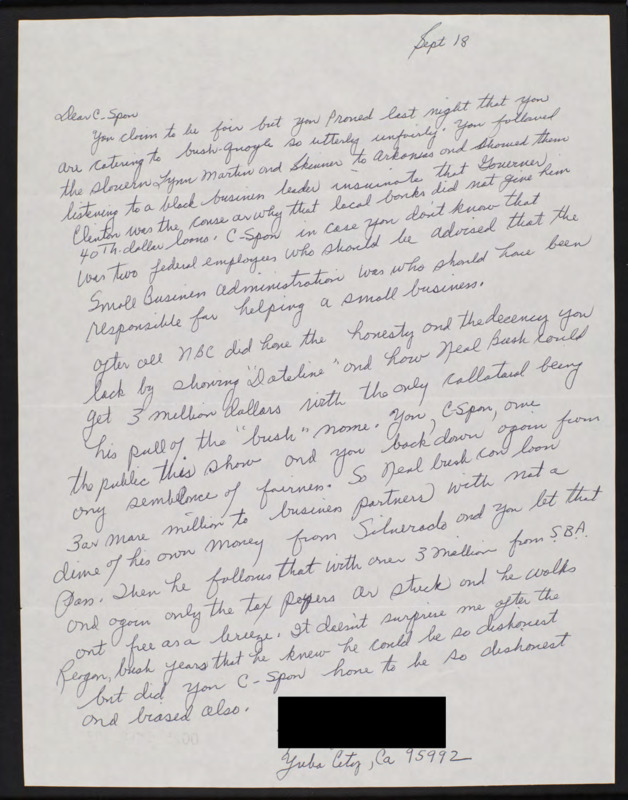 Sept 18
Dear C-Span
You claim to be fair but you Proned last night that you
are catering to bush-quayle so utterly unfairly. You followed
the slovern Lynn Martin and Skinner to Arkansas and showed them
listening to a black business leader insinuate that Governer
Clinton was the, cause ar why that local banks did not give him
40 Th. dollar loans. C-Span in case you don't know that
was two federal employees who should be advised that the
Small Business administration was who should have been
responsible for helping a small business.
after all NBC did have the honesty and the decency you
lack by showing "Dateline" and how Neal Bush could
get 3 million dollars with the only collataral being
his pull of the "bush" name. You, C-Span, owe
the public this show and you back down again from
any semblence of fairness. So Neal bush can loan
3 ar more million to business partners with not a
dime of his own money from Silverado and you let that
Pass. Then he follows that with over 3 million from S.B.A.
and again only the tax payers ar stuck and he walks
out free as a breeze. It doesn't surprise me after the
Reagan, bush years that he knew he could be so dishonest
but did you C-Span have to be so dishonest
and biased also.
Yuba City, Ca 95992